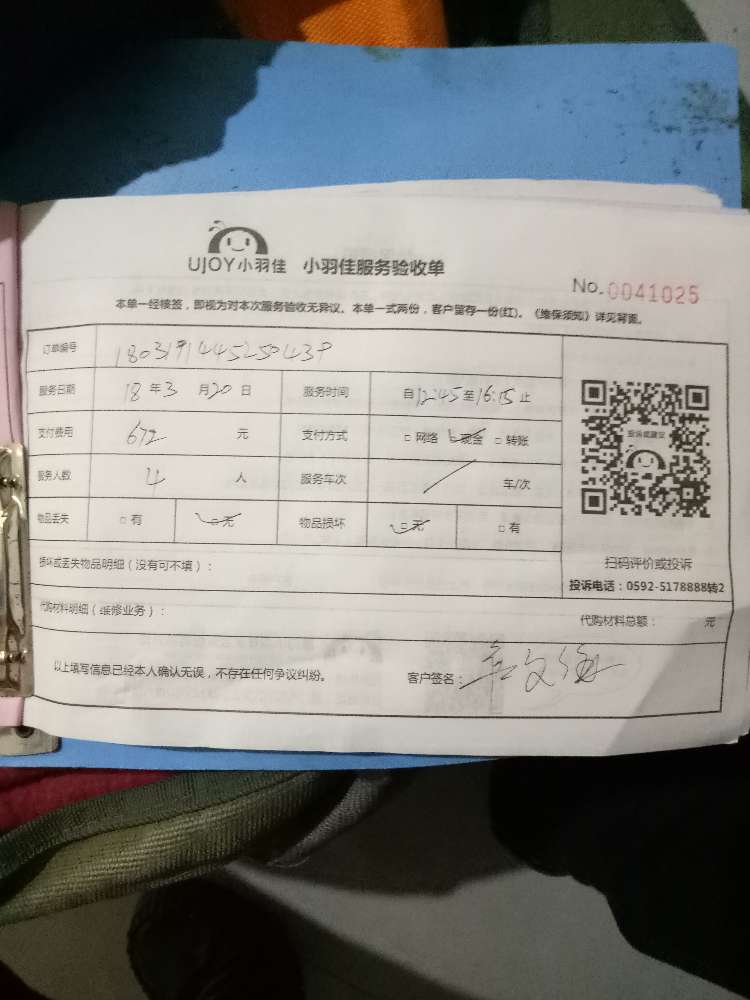 UJOY小羽佳 小羽佳服务验收单
No.0041025
本单一经接签，即视为对本次服务验收无异议。本单一式两份，客户留存一份(红)。《维保须知》详见背面。
订单编号
服务日期 18年3月20日 服务时间 自12:45至16:15止
支付费用 672元 支付方式 □网络 □现金 □转账
服务人数 4人 服务车次 / 车/次
物品丢失 □有 □无 物品损坏 □无 □有
投诉或建议
扫码评价或投诉
投诉电话：0592-5178888转2
损坏或丢失物品明细（没有可不填）：
代购材料明细（维修业务）： 代购材料总额： 元
以上填写信息已经本人确认无误，不存在任何争议纠纷。 客户签名：